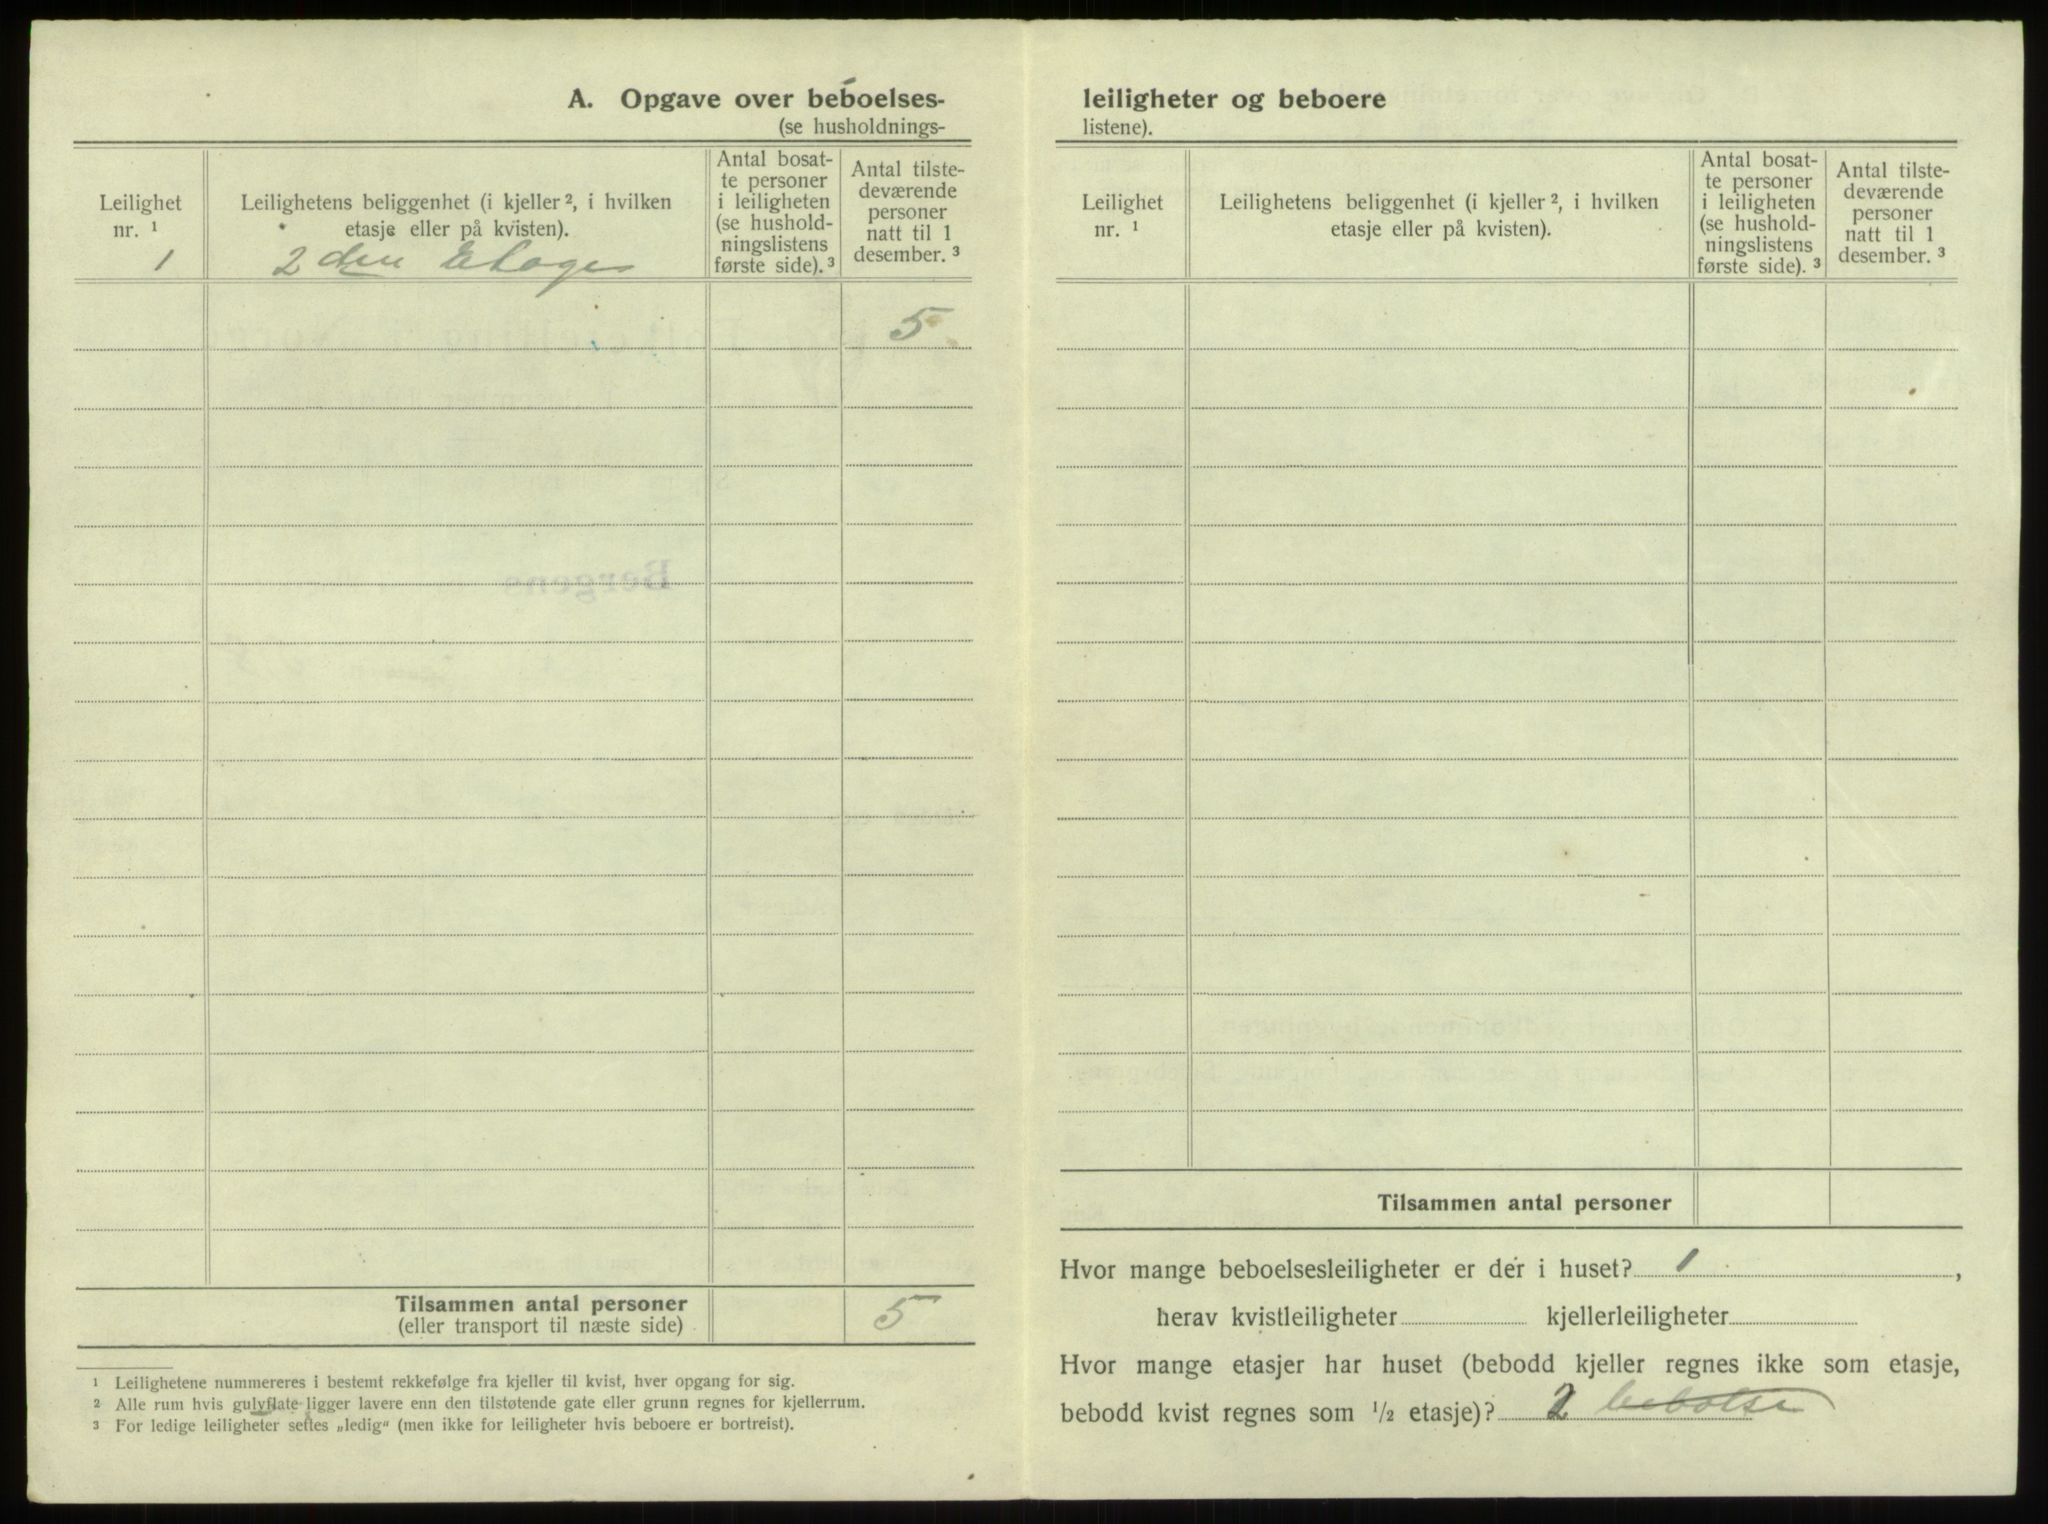 A. Opgave over beboelses-
(se husholdnings-
Leilighet
nr. ¹
Leilighetens beliggenhet (i kjeller ², i hvilken
etasje eller på kvisten).
Antal bosat-
te personer
i leiligheten
(se hushold-
ningslistens
første side). ³
Antal tilste-
deværende
personer
natt til 1
desember. ³
1
2 den Etage
5
Tilsammen antal personer
(eller transport til næste side)
5
¹ Leilighetene nummereres i bestemt rekkefølge fra kjeller til kvist, hver opgang for sig.
² Alle rum hvis gulvflate ligger lavere enn den tilstøtende gate eller grunn regnes for kjellerrum.
³ For ledige leiligheter settes „ledig“ (men ikke for leiligheter hvis beboere er bortreist).
leiligheter og beboere
listene).
Leilighet
nr. ¹
Leilighetens beliggenhet (i kjeller ², i hvilken
etasje eller på kvisten).
Antal bosat-
te personer
i leiligheten
(se hushold-
ningslistens
første side). ³
Antal tilste-
deværende
personer
natt til 1
desember. ³
Tilsammen antal personer
Hvor mange beboelsesleiligheter er der i huset? 1,
herav kvistleiligheter kjellerleiligheter
Hvor mange etasjer har huset (bebodd kjeller regnes ikke som etasje,
bebodd kvist regnes som ½ etasje)? 2